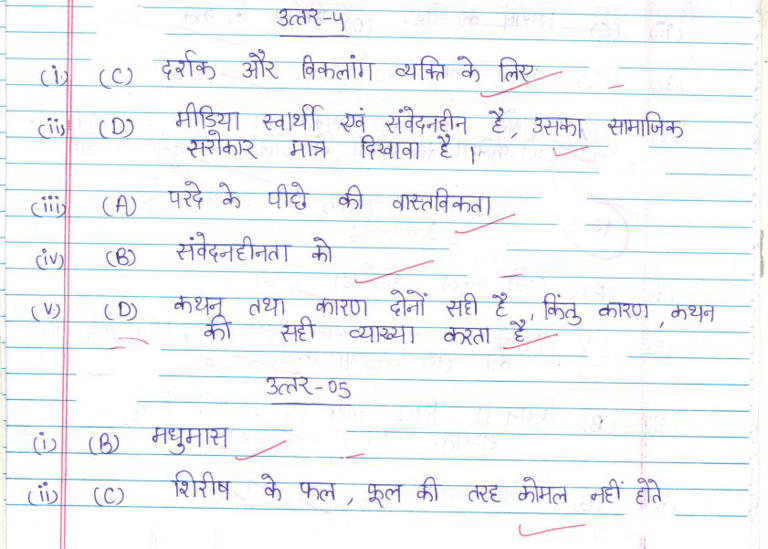 उत्तर-4
(i) (C) दर्शक और विकलांग व्यक्ति के लिए
(ii) (D) मीडिया स्वार्थी एवं संवेदनहीन है, उसका सामाजिक
सरोकार मात्र दिखावा है।
(iii) (A) परदे के पीछे की वास्तविकता
(iv) (B) संवेदनहीनता को
(v) (D) कथन तथा कारण दोनों सही है, किंतु कारण, कथन
की सही व्याख्या करता है
उत्तर-05
(i) (B) मधुमास
(ii) (C) शिरीष के फल, फूल की तरह कोमल नहीं होते